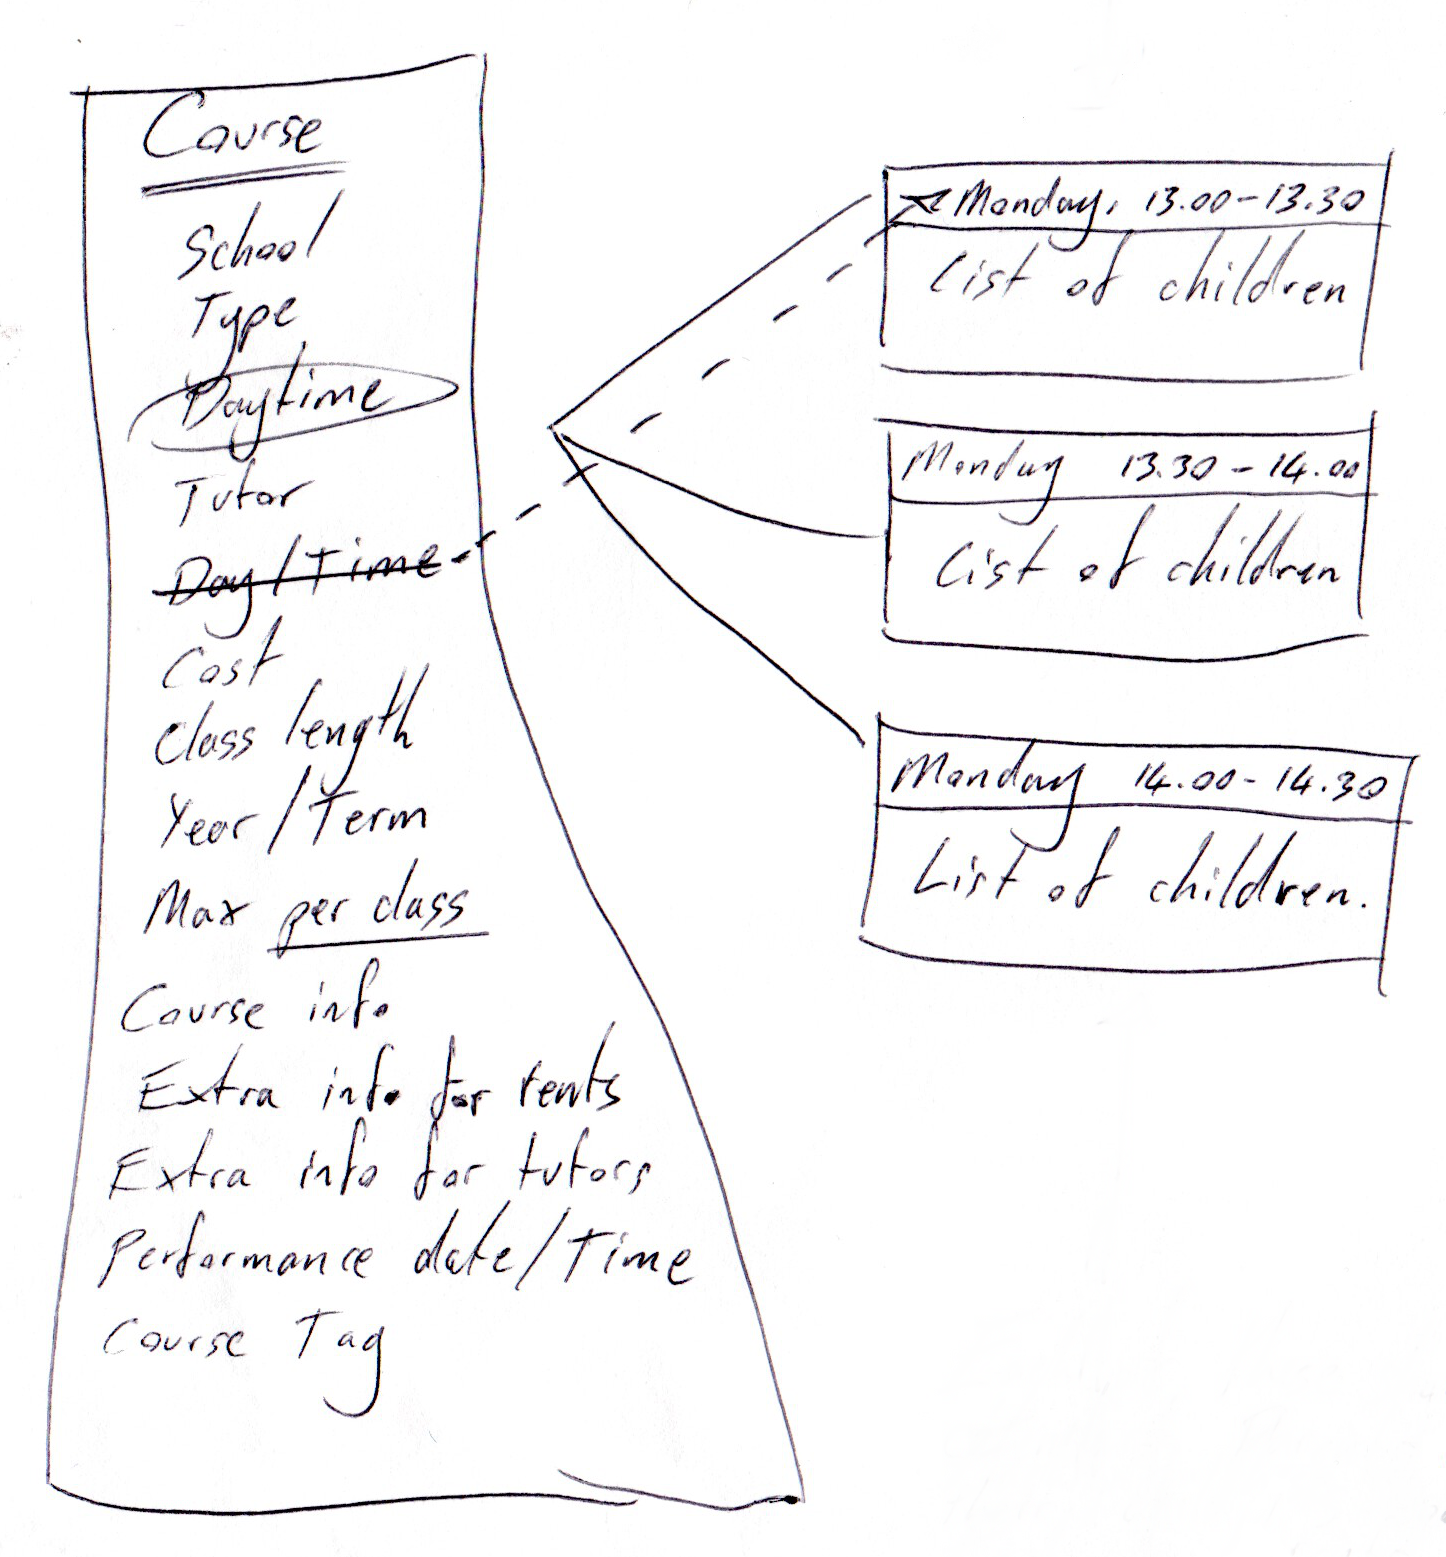 Course
School
Type
Daytime
Tutor
Day/Time
Cost
Class length
Year/Term
Max per class
Course info
Extra info for rents
Extra info for tutors
Performance date/Time
Course Tag
Monday, 13.00-13.30
List of children
Monday 13.30-14.00
List of children
Monday 14.00-14.30
List of children.